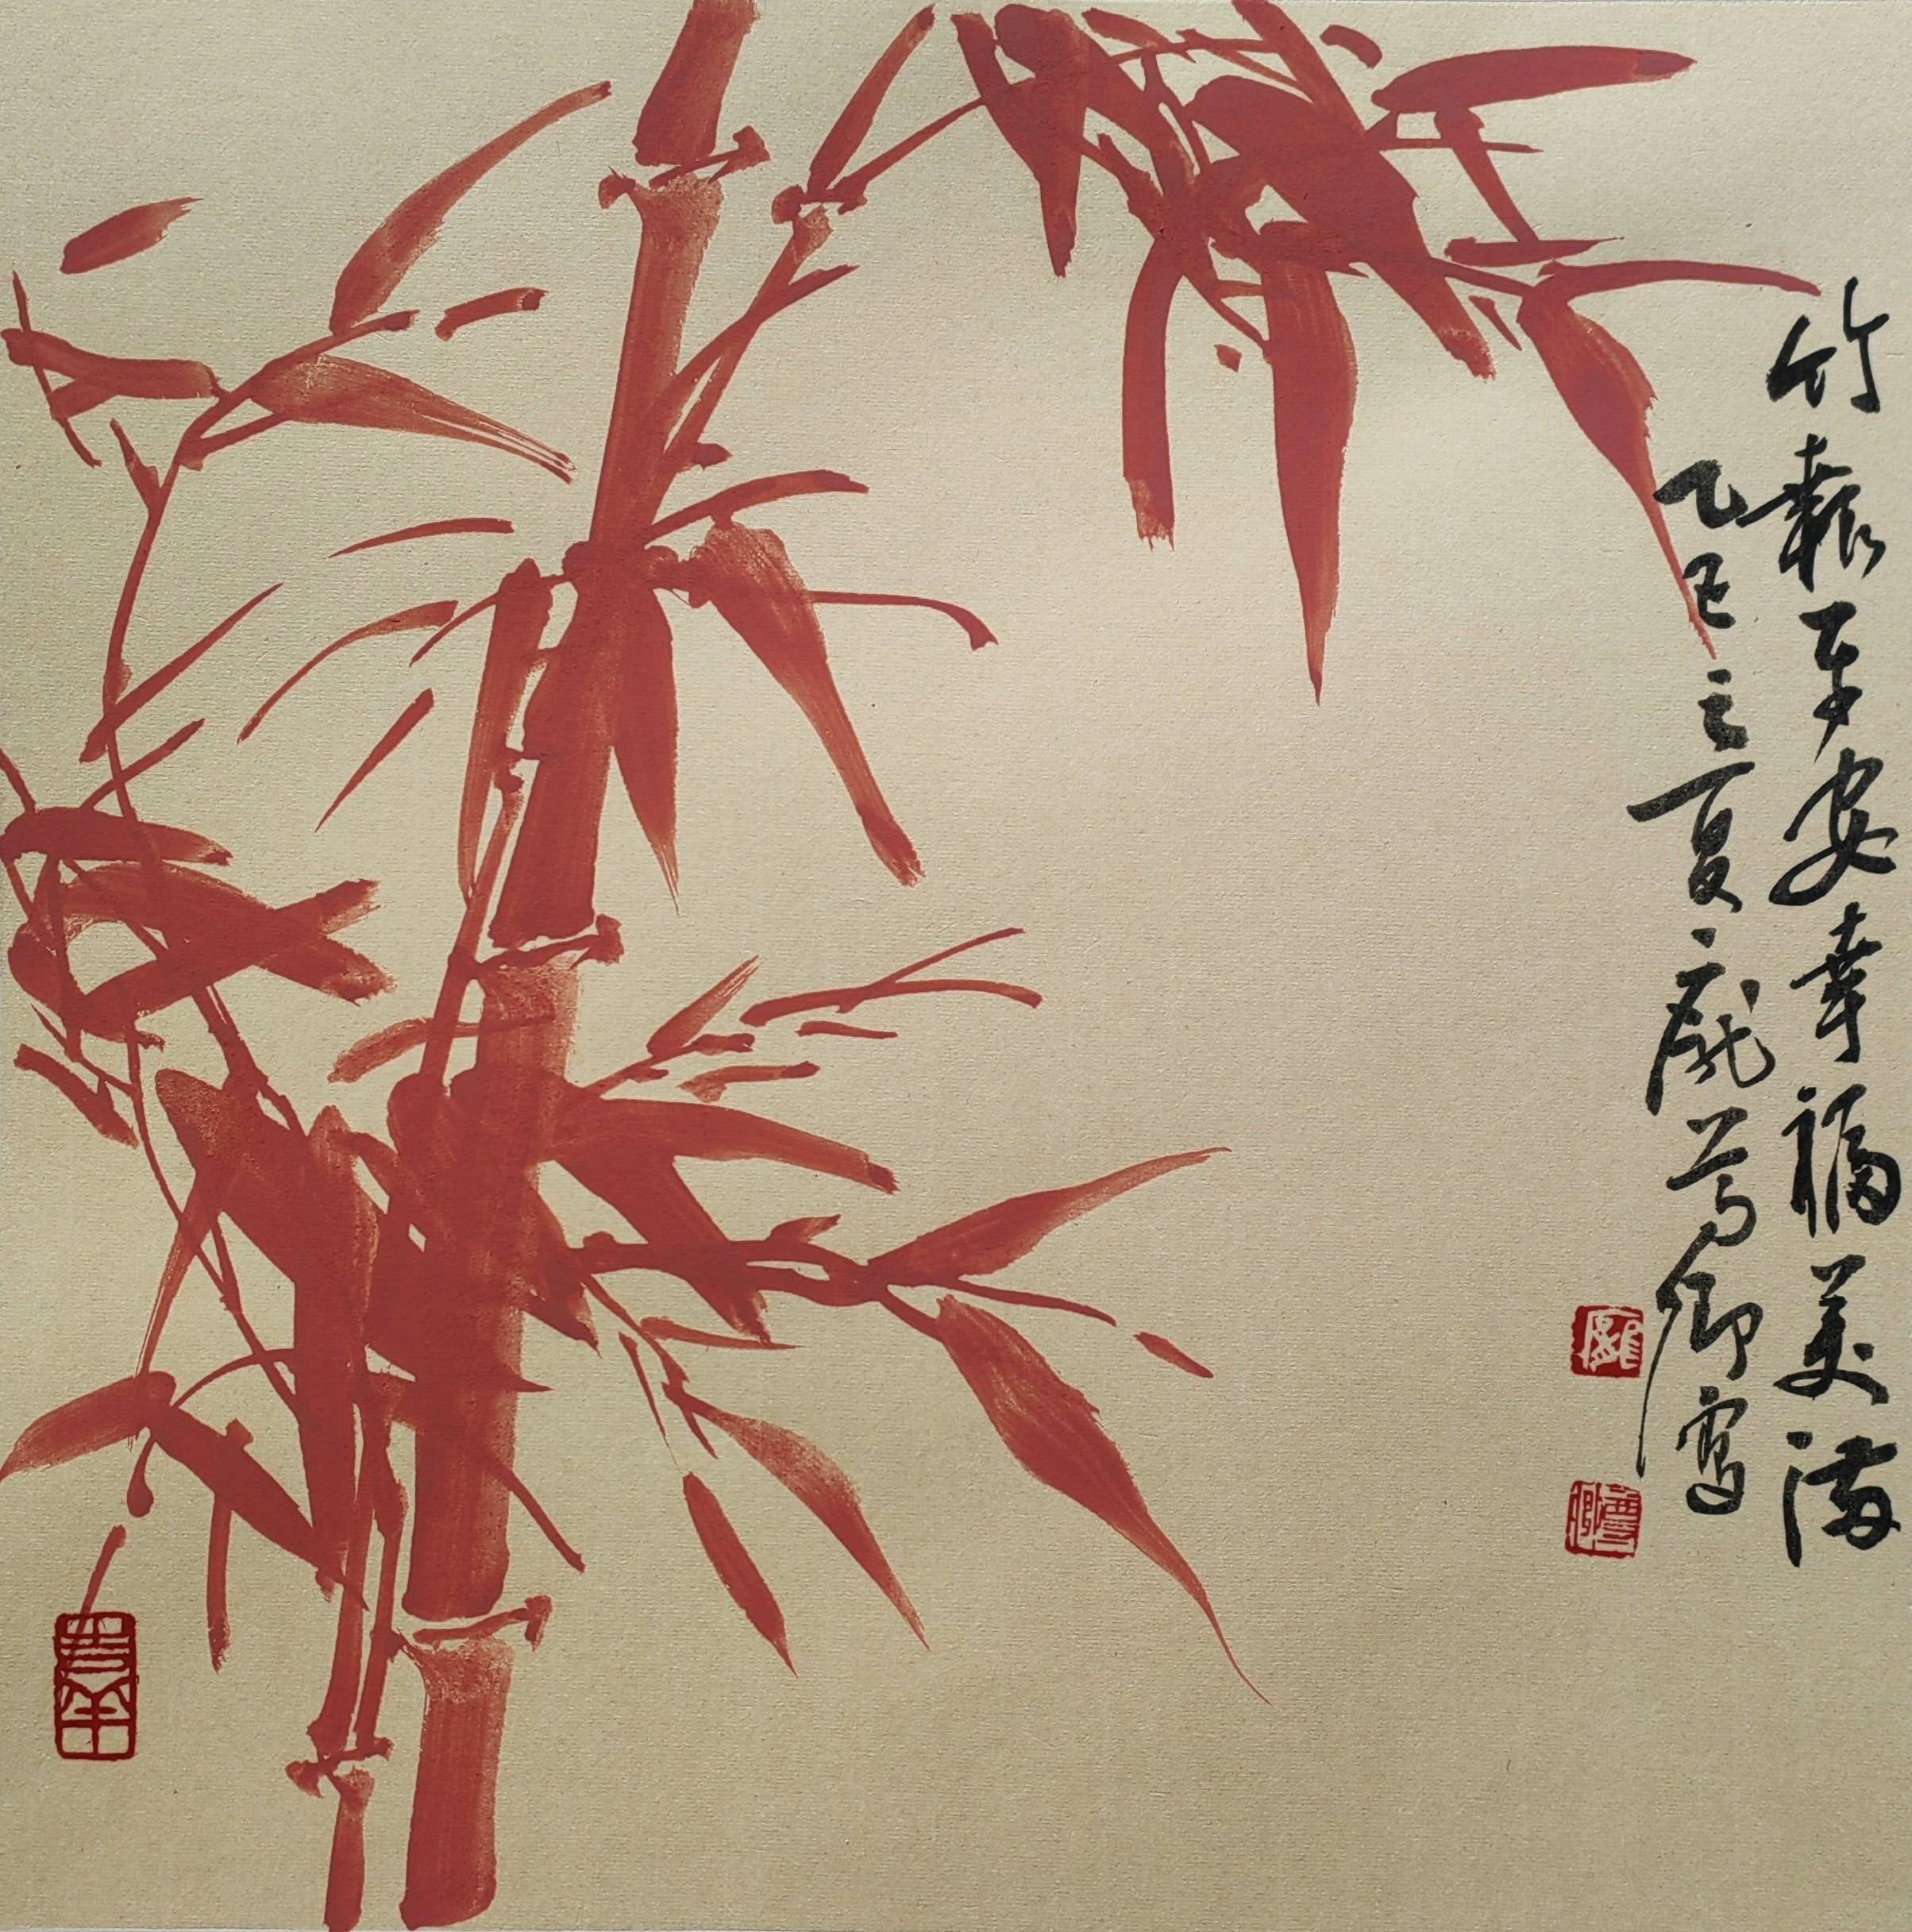 竹報平安幸福美滿
乙巳之夏龐萼卿寫